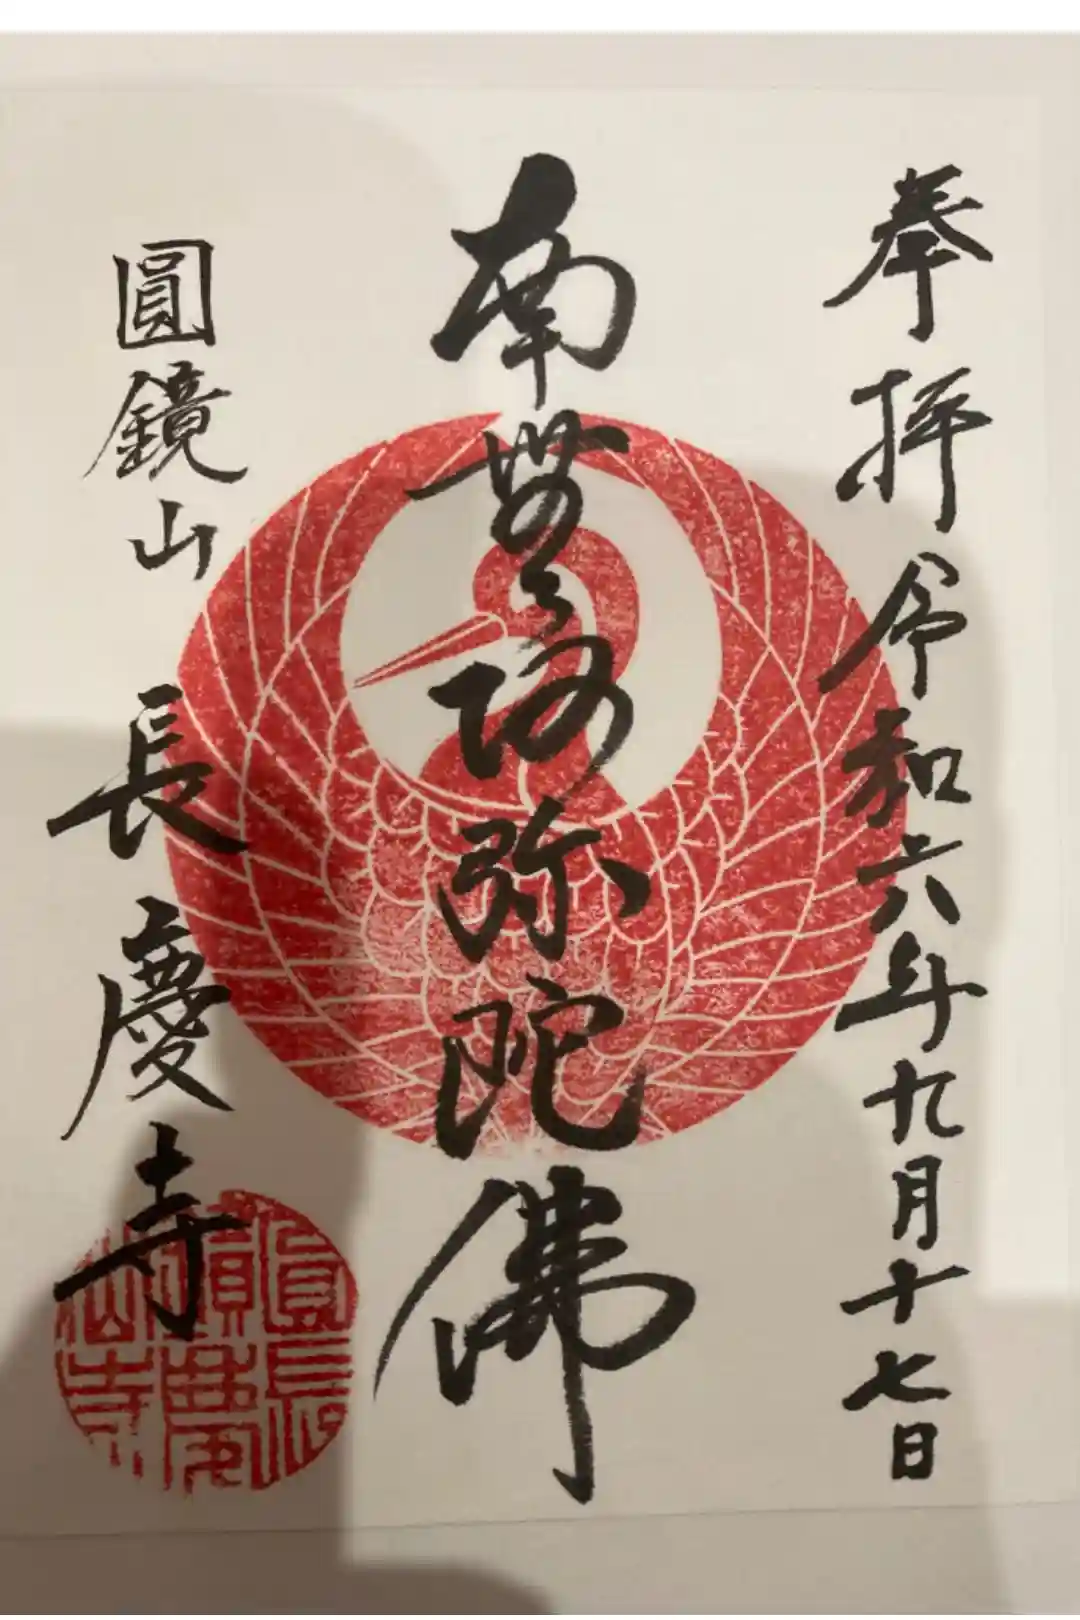 奉拝令和六年九月十七日
南無阿弥陀佛
圓鏡山
長慶寺
圓長
鏡慶
山寺